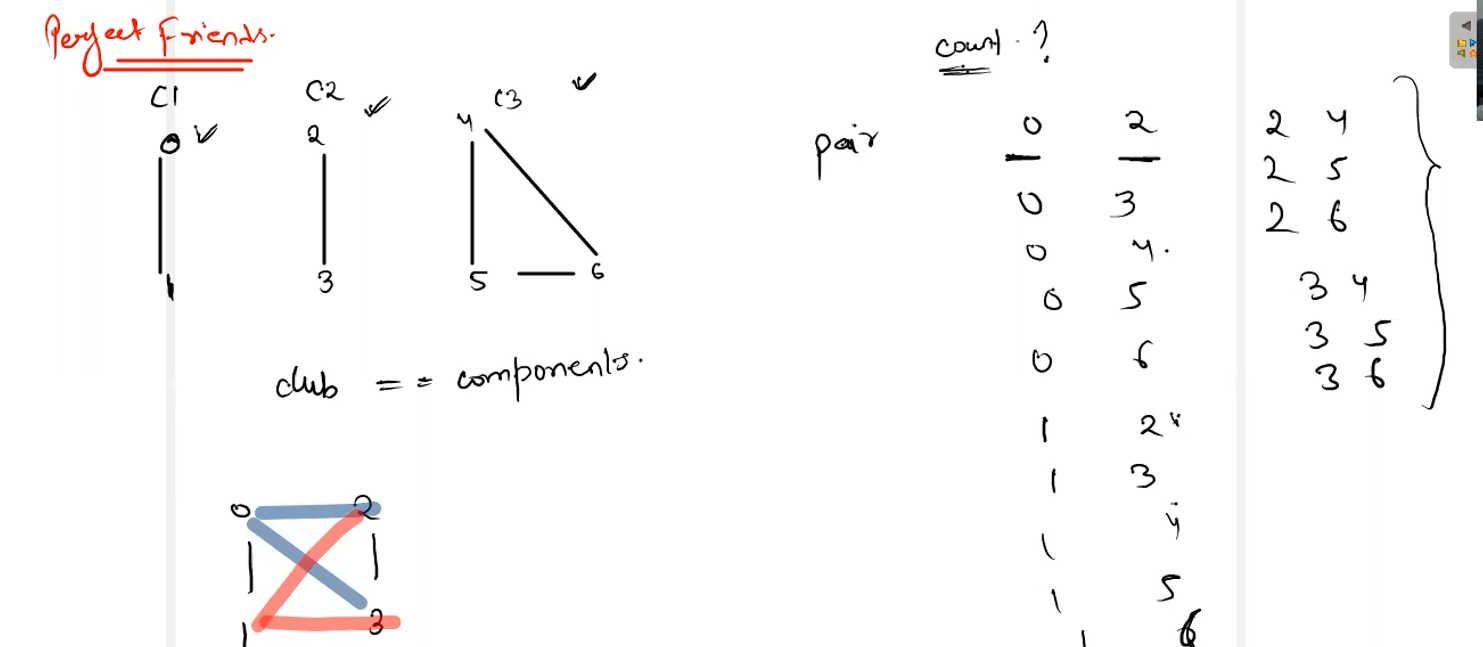 Perfect Friends.
count . ?
C1 C2 C3
0 2 4
1 3 5 6
club == components.
0 2
1 3
pair
0 2
0 3
0 4.
0 5
0 6
1 2
1 3
1 4
1 5
1 6
2 4
2 5
2 6
3 4
3 5
3 6